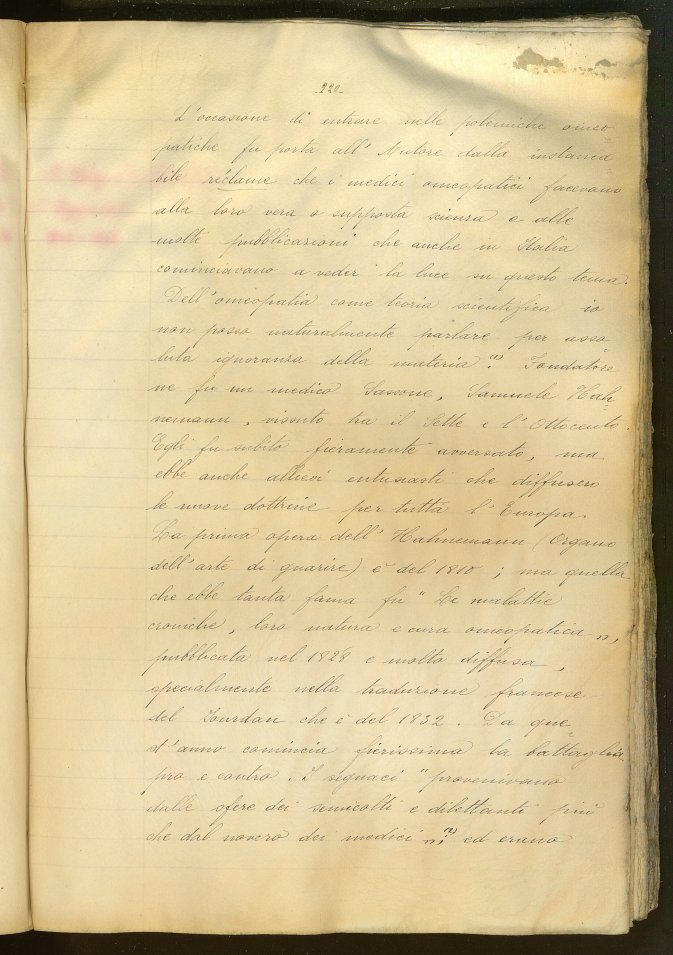 -220-
L'occasione di entrare nelle polemiche omeo
patiche fu porta all'Autore dalla instanca
bile réclame che i medici omeopatici facevano
alla loro vera o supposta scienza e alle
molti pubblicazioni che anche in Italia
cominciavano a veder la luce su questo tema.
Dell'omeopatia come teoria scientifica io
non posso naturalmente parlare per asso
luta ignoranza della materia (1). Fondatore
ne fu un medico Sassone, Samuele Hah-
nemann, vissuto tra il Sette e l'Ottocento.
Egli fu subito fieramente avversato, ma
ebbe anche allievi entusiasti che diffusero
le nuove dottrine per tutta l'Europa.
La prima opera dell'Hahnemann (Organo
dell'arte di guarire) è del 1810; ma quella
che ebbe tanta fama fu "Le malattie
croniche, loro natura e cura omeopatica",
pubblicata nel 1828 e molto diffusa,
specialmente nella traduzione francese
del Jourdan che è del 1832. Da que-
st'anno comincia fierissima la battaglia
pro e contro. I seguaci "provenivano
dalle sfere dei semicolti e dilettanti più
che dal novero dei medici" (2); ed erano